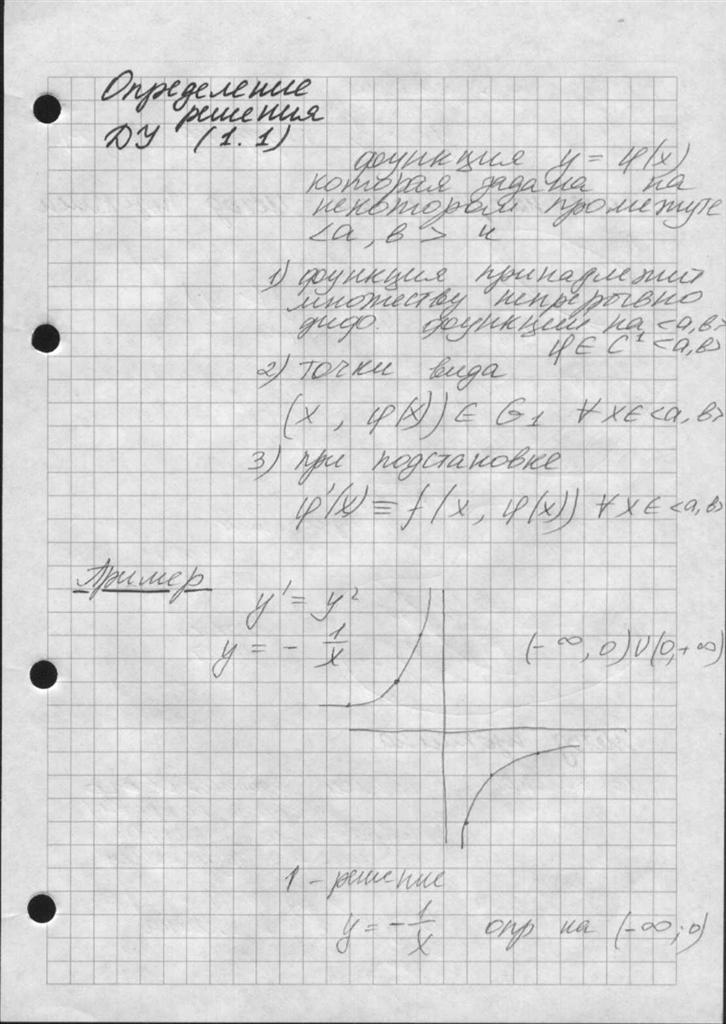 Определение
решения
ДУ (1.1)
функция y = φ(x)
которая задана на
некотором промежутке
<a, b> и
1) функция принадлежит
множеству непрерывно
диф. функций на <a, b>
φ ∈ C¹ <a, b>
2) точки вида
(x, φ(x)) ∈ G₁ ∀ x ∈ <a, b>
3) при подстановке
φ'(x) ≡ f(x, φ(x)) ∀ x ∈ <a, b>
Пример
y' = y²
y = - 1/x (-∞, 0)∪(0, +∞)
1 - решение
y = - 1/x опр на (-∞; 0)